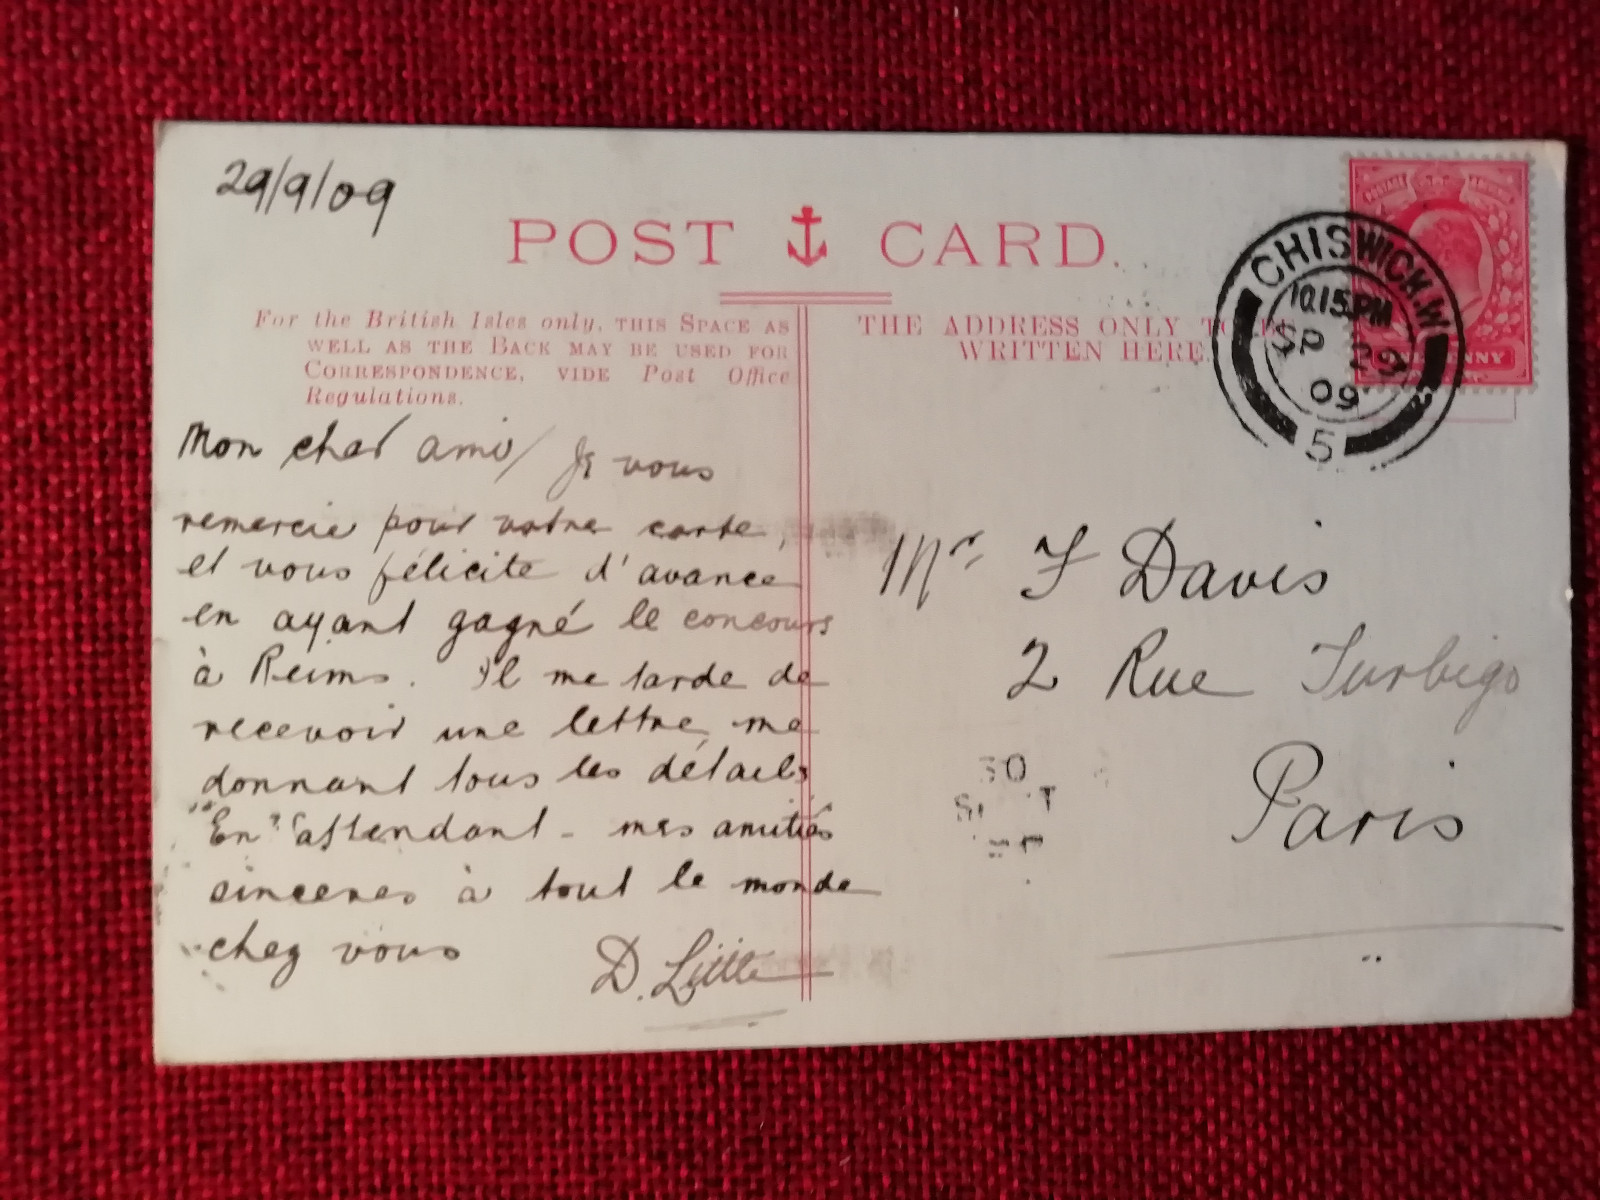 29/9/09
POST CARD.
For the British Isles only, THIS SPACE AS
WELL AS THE BACK MAY BE USED FOR
CORRESPONDENCE, VIDE Post Office
Regulations.
THE ADDRESS ONLY TO BE
WRITTEN HERE.
CHISWICH.W
10.15PM
SP 29
09
5
ONE PENNY
Mon cher ami/ Je vous
remercie pour votre carte,
et vous félicite d'avance
en ayant gagné le concours
à Reims. Il me tarde de
recevoir une lettre, me
donnant tous les détails
"En" attendant - mes amitiés
sinceres à tout le monde
chez vous
D.
Mr. F Davis
2 Rue Turbigo
Paris
30